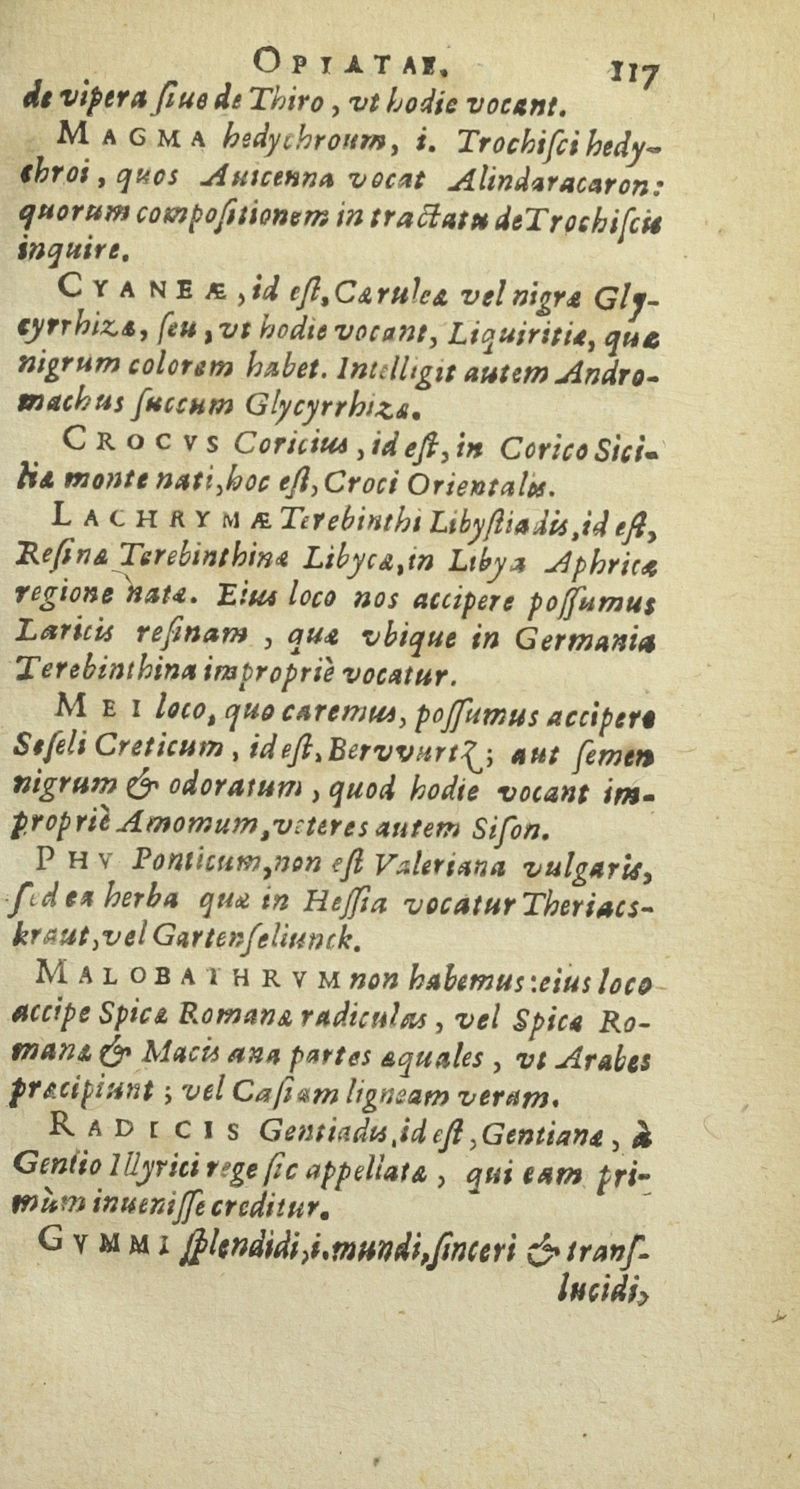 OPIATAE. 117
de vipera ſiue de Thiro, vt hodie vocant.
MAGMA hedychroum, i. Trochiſci hedy-
chroi, quos Auicenna vocat Alindaracaron:
quorum compoſitionem in tractatu de Trochiſcis
inquire.
CYANEÆ, id eſt, Cæruleæ vel nigræ Gly-
cyrrhizæ, ſeu, vt hodie vocant, Liquiritiæ, quæ
nigrum colorem habet. Intelligit autem Andro-
machus ſuccum Glycyrrhizæ.
CROCVS Coricius, id eſt, in Corico Sici-
liæ monte nati, hoc eſt, Croci Orientalis.
LACHRYMÆ Terebinthi Libyſtiadis, id eſt,
Reſinæ Terebinthinæ Libycæ, in Libya Aphricæ
regione natæ. Eius loco nos accipere poſſumus
Laricis reſinam, quæ vbique in Germania
Terebinthina impropriè vocatur.
MEI loco, quo caremus, poſſumus accipere
Seſeli Creticum, id eſt, Bervvurtz; aut ſemen
nigrum & odoratum, quod hodie vocant im-
propriè Amomum, veteres autem Siſon.
PHV Ponticum, non eſt Valeriana vulgaris,
ſed ea herba quæ in Heſſia vocatur Theriacs-
kraut, vel Gartenſeliunck.
MALOBATHRVM non habemus: eius loco
accipe Spicæ Romanæ radiculas, vel Spicæ Ro-
manæ & Macis ana partes æquales, vt Arabes
præcipiunt; vel Caſiam ligneam veram.
RADICIS Gentiadis, id eſt, Gentianæ, à
Gentio Illyrici rege ſic appellatæ, qui eam pri-
mùm inueniſſe creditur.
GVMMI ſplendidi, i. mundi, ſinceri & tranſ-
lucidi,